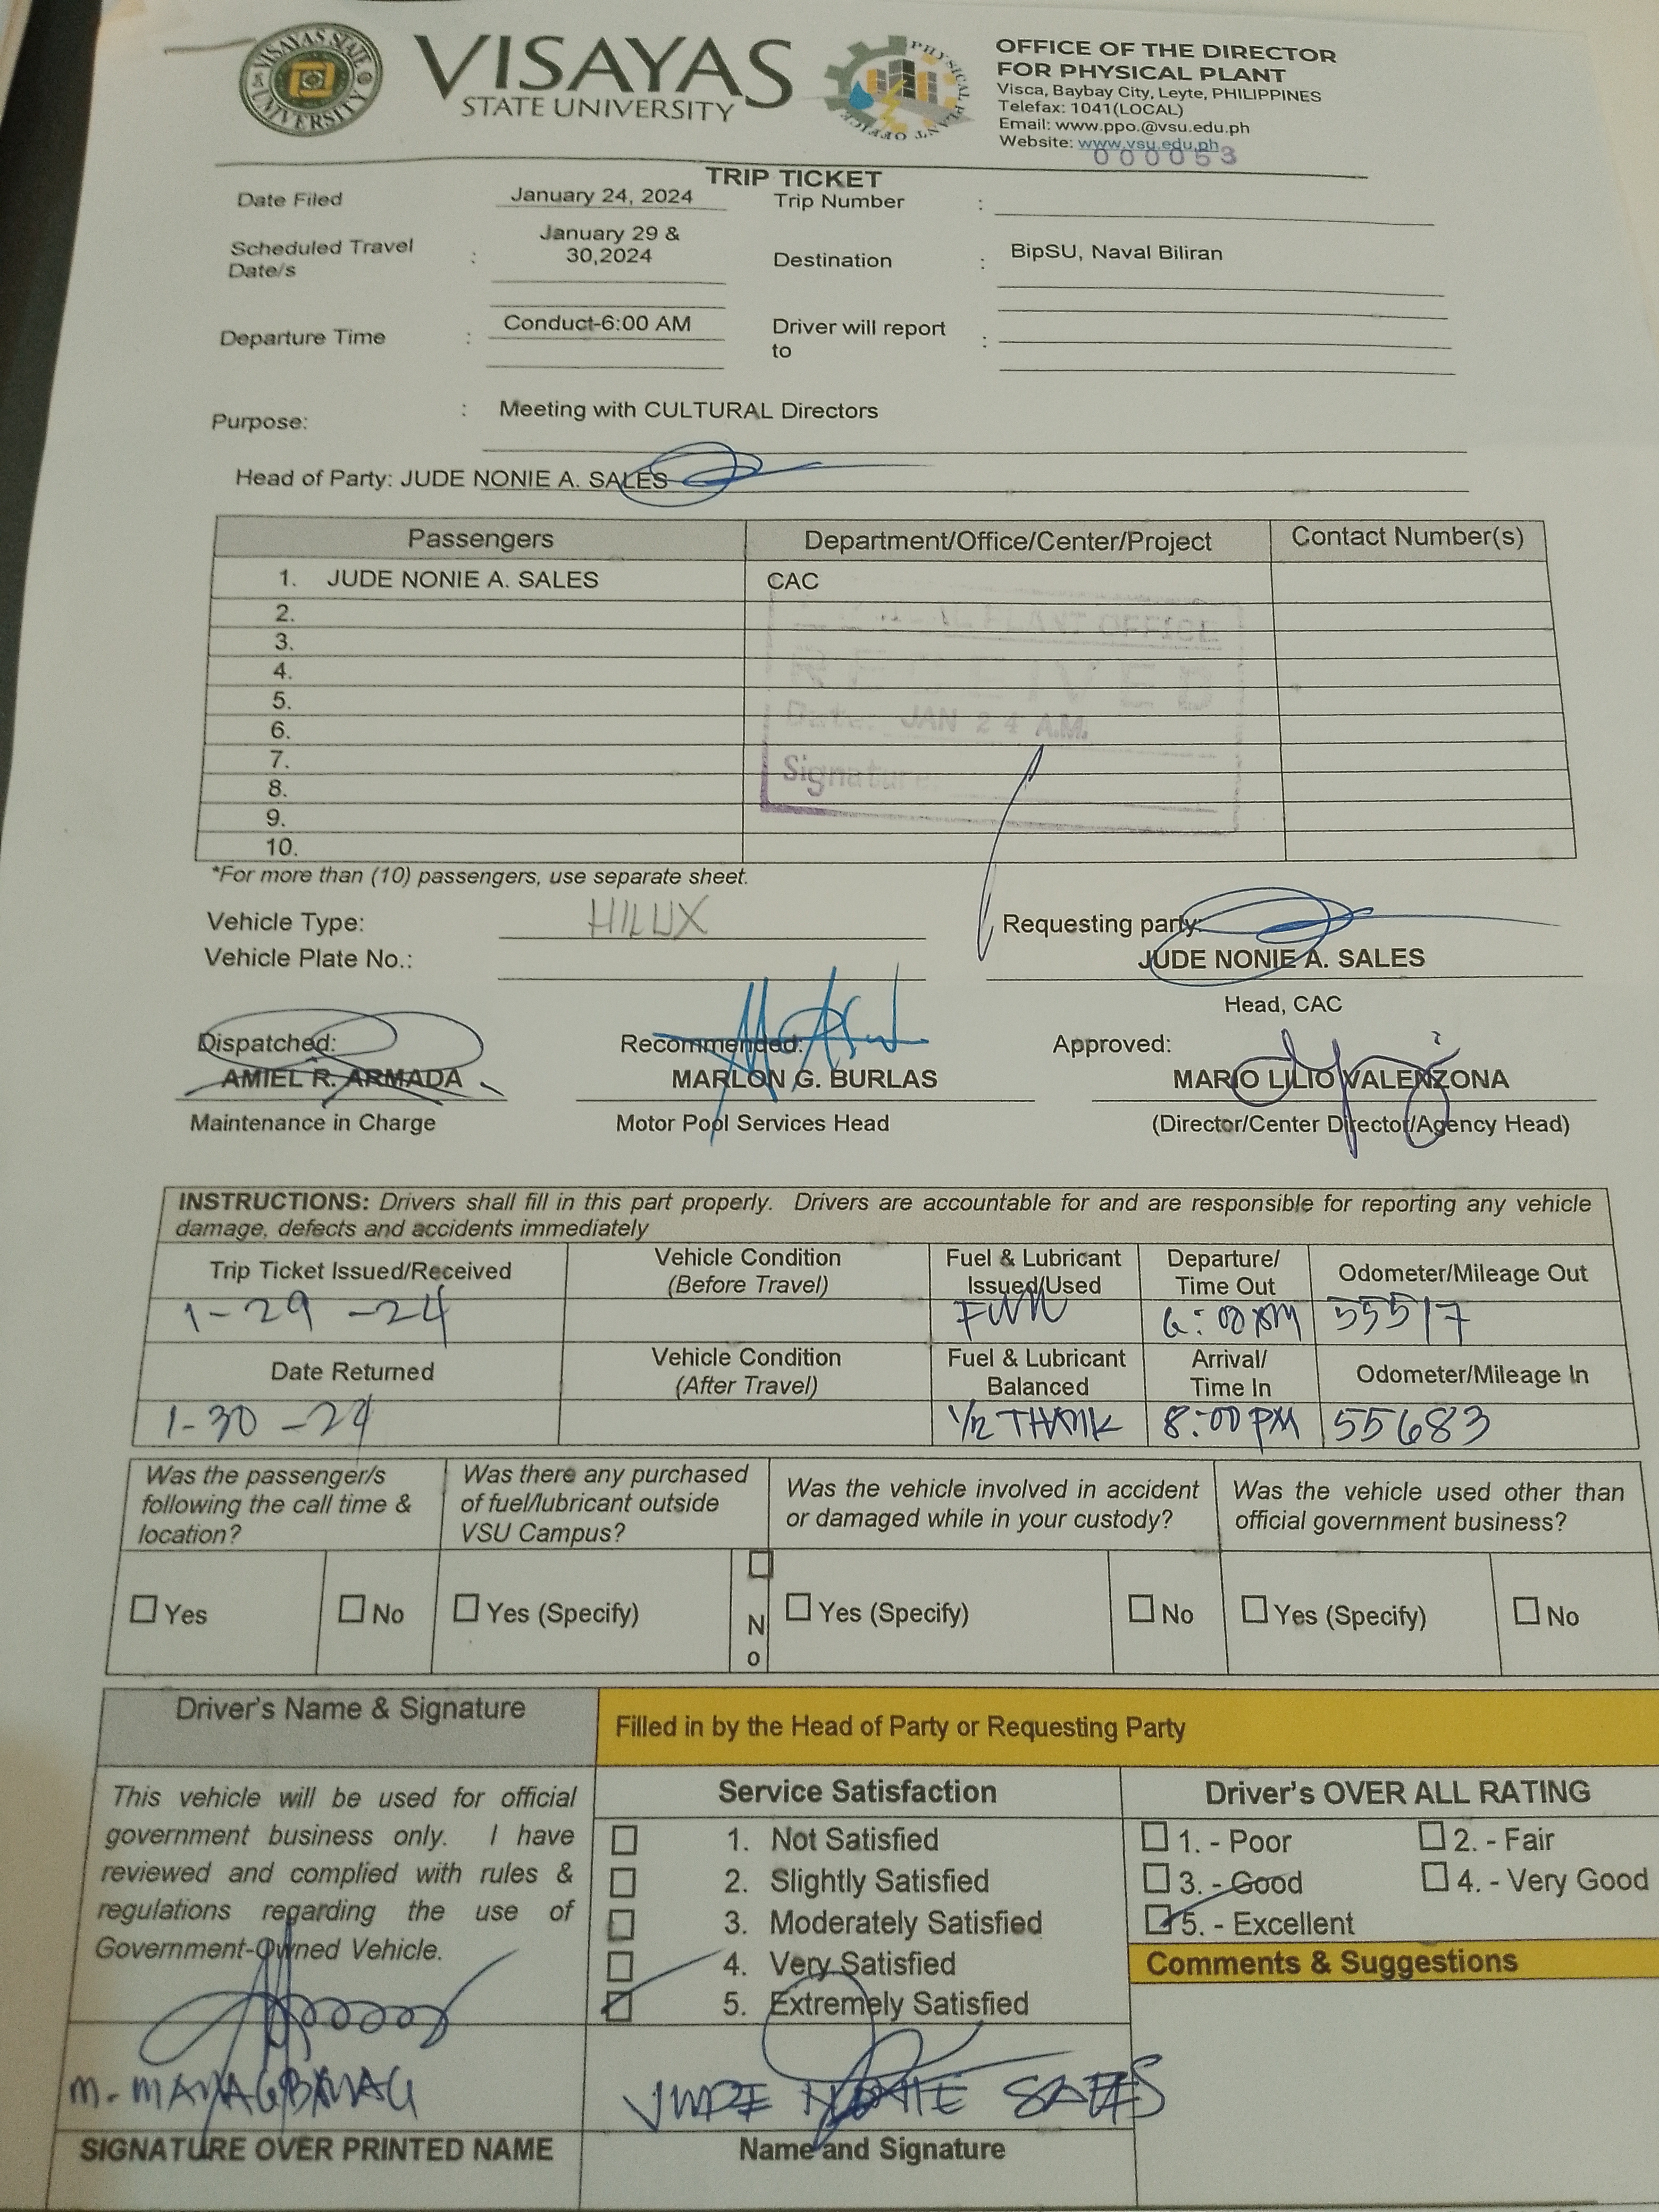 VISAYAS STATE UNIVERSITY
VISAYAS
STATE UNIVERSITY
PHYSICAL PLANT OFFICE
OFFICE OF THE DIRECTOR
FOR PHYSICAL PLANT
Visca, Baybay City, Leyte, PHILIPPINES
Telefax: 1041(LOCAL)
Email: www.ppo.@vsu.edu.ph
Website: www.vsu.edu.ph
000053
TRIP TICKET
Date Filed January 24, 2024 Trip Number :
Scheduled Travel Date/s : January 29 & 30,2024 Destination : BipSU, Naval Biliran
Departure Time : Conduct-6:00 AM Driver will report to :
Purpose: : Meeting with CULTURAL Directors
Head of Party: JUDE NONIE A. SALES
Passengers Department/Office/Center/Project Contact Number(s)
1. JUDE NONIE A. SALES CAC
2.
3.
4.
5.
6.
7.
8.
9.
10.
PLANT OFFICE
RECEIVED
Date: JAN 24 A.M.
Signature
*For more than (10) passengers, use separate sheet.
Vehicle Type: HILUX Requesting party:
Vehicle Plate No.: JUDE NONIE A. SALES
Head, CAC
Dispatched: Recommended: Approved:
AMIEL R. ARMADA MARLON G. BURLAS MARIO LILIO VALENZONA
Maintenance in Charge Motor Pool Services Head (Director/Center Director/Agency Head)
INSTRUCTIONS: Drivers shall fill in this part properly. Drivers are accountable for and are responsible for reporting any vehicle
damage, defects and accidents immediately
Trip Ticket Issued/Received Vehicle Condition (Before Travel) Fuel & Lubricant Issued/Used Departure/ Time Out Odometer/Mileage Out
1-29-24 6:00 55517
Date Returned Vehicle Condition (After Travel) Fuel & Lubricant Balanced Arrival/ Time In Odometer/Mileage In
1-30-24 1/2 THANK 8:00 PM 55683
Was the passenger/s following the call time & location? Was there any purchased of fuel/lubricant outside VSU Campus? Was the vehicle involved in accident or damaged while in your custody? Was the vehicle used other than official government business?
Yes No Yes (Specify) No Yes (Specify) No Yes (Specify) No
Driver's Name & Signature Filled in by the Head of Party or Requesting Party
This vehicle will be used for official
government business only. I have
reviewed and complied with rules &
regulations regarding the use of
Government-Owned Vehicle.
Service Satisfaction
1. Not Satisfied
2. Slightly Satisfied
3. Moderately Satisfied
4. Very Satisfied
5. Extremely Satisfied
Driver's OVER ALL RATING
1. - Poor 2. - Fair
3. - Good 4. - Very Good
5. - Excellent
Comments & Suggestions
JUDE NONIE SALES
SIGNATURE OVER PRINTED NAME Name and Signature